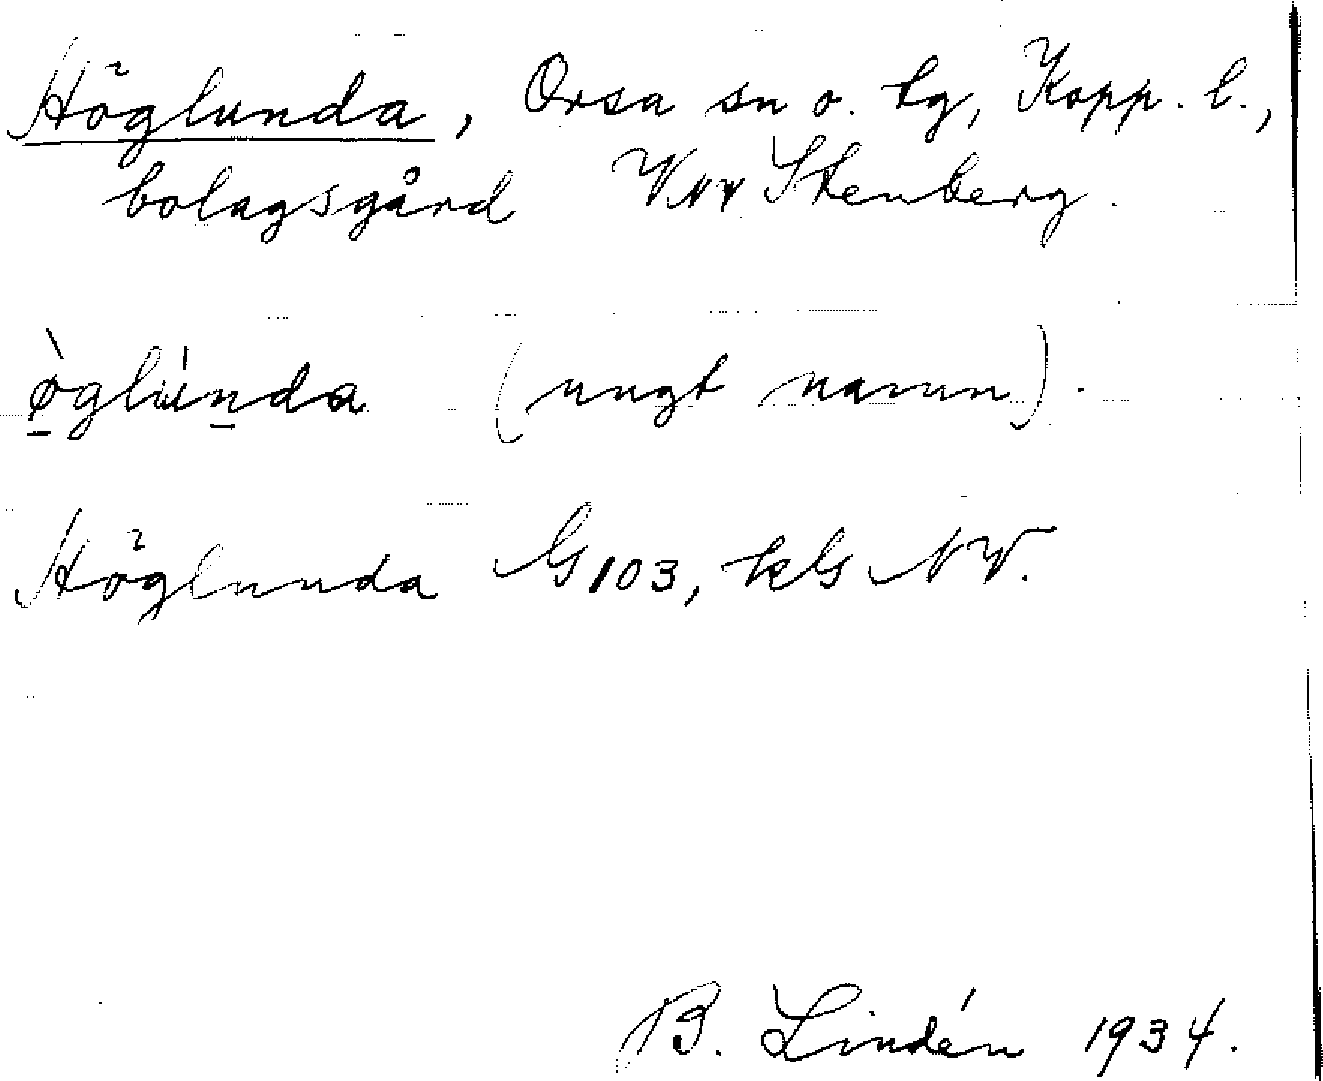 Höglunda, Orsa sn o. tg, Kopp. l.,
bolagsgård VNV Stenberg.
ø̀glúnda (ungt namn).
Höglunda G 103, kG NV.
B. Lindén 1934.